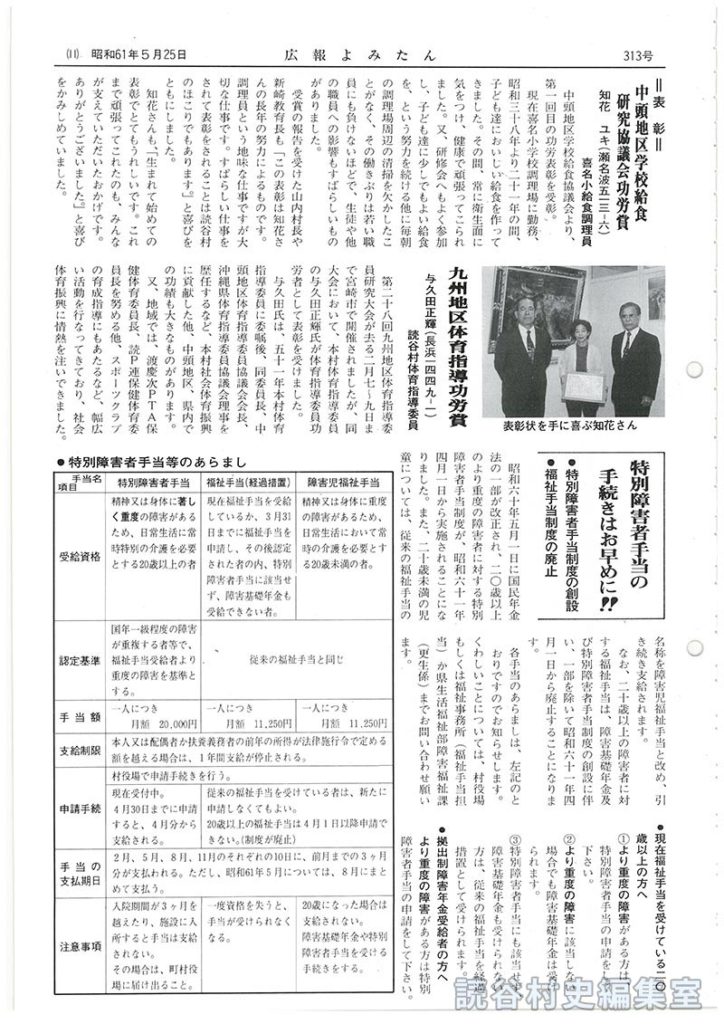 (11) 昭和61年5月25日
広報よみたん
313号
＝表彰＝
中頭地区学校給食
研究協議会功労賞
喜名小給食調理員
知花 ユキ(瀬名波五一三-六)
中頭地区学校給食協議会より、
第一回目の功労表彰を受彰。
現在喜名小学校調理場に勤務、
昭和三十八年より二十一年の間、
子ども達においしい給食を作って
きました。その間、常に衛生面に
気をつけ、健康で頑張ってこられ
ました。又、研修会へもよく参加
し、子ども達に少しでもよい給食
を、という努力を続ける他に毎朝
の調理場周辺の清掃を欠かしたこ
とがなく、その働きぶりは若い職
員にも負けないほどで、生徒や他
の職員への影響もすばらしいもの
がありました。
受賞の報告を受けた山内村長や
新崎教育長も「この表彰は知花さ
んの長年の努力によるものです。
調理員という地味な仕事ですが大
切な仕事です。すばらしい仕事を
されて表彰をされることは読谷村
のほこりでもあります』と喜びを
ともにしました。
知花さんも「生まれて始めての
表彰でとてもうれしいです。これ
まで頑張ってこれたのも、みんな
が支えていただいたおかげです。
ありがとうございました』と喜び
をかみしめていました。
表彰状を手に喜ぶ知花さん
九州地区体育指導功労賞
読谷村体育指導委員
与久田正輝(長浜一四四九-一)
第二十八回九州地区体育指導委
員研究大会が去る二月七～九日ま
で宮崎市で開催されましたが、同
大会において、本村体育指導委員
の与久田正輝氏が体育指導委員功
労者として表彰を受けました。
与久田氏は、五十一年本村体育
指導委員に委嘱後、同委員長、中
頭地区体育指導委員協議会会長、
沖縄県体育指導委員協議会理事を
歴任するなど、本村社会体育振興
に貢献した他、中頭地区、県内で
の功績も大きなものがあります。
又、地域では、渡慶次PTA保
健体育委員長、読P連保健体育委
員長を努める他、スポーツクラブ
の育成指導にもあたるなど、幅広
い活動を行なってきており、社会
体育振興に情熱を注いできました。
特別障害者手当の
手続きはお早めに!!
●特別障害者手当制度の創設
●福祉手当制度の廃止
昭和六十年五月一日に国民年金
法の一部が改正され、二〇歳以上
のより重度の障害者に対する特別
障害者手当制度が、昭和六十一年
四月一日から実施されることにな
りました。また、二十歳未満の児
童については、従来の福祉手当の
名称を障害児福祉手当と改め、引
き続き支給されます。
なお、二十歳以上の障害者に対
する福祉手当は、障害基礎年金及
び特別障害者手当制度の創設に伴
い、一部を除いて昭和六十一年四
月一日から廃止することになりま
す。
各手当のあらましは、左記のと
おりですのでお知らせします。
くわしいことについては、村役場
もしくは福祉事務所(福祉手当担
当)か県生活福祉部障害福祉課
(更生係)までお問い合わせ願い
ます。
●現在福祉手当を受けている二〇
歳以上の方へ
①より重度の障害がある方は、
特別障害者手当の申請をして
下さい。
②より重度の障害に該当しない
場合でも障害基礎年金は受け
られます。
③特別障害者手当にも該当せず
障害基礎年金も受けられない
方は、従来の福祉手当を経過
措置として受けられます。
●拠出制障害年金受給者の方へ
より重度の障害がある方は特別
障害者手当の申請をして下さい。
●特別障害者手当等のあらまし
手当名
項目
特別障害者手当
福祉手当(経過措置)
障害児福祉手当
受給資格
精神又は身体に著し
く重度の障害があるた
め、日常生活に常
時特別の介護を必要
とする20歳以上の者
現在福祉手当を受給
しているか、3月31
日までに福祉手当を
申請し、その後認定
された者の内、特別
障害者手当に該当せ
ず、障害基礎年金も
受給できない者。
精神又は身体に重度
の障害があるため、
日常生活において常
時の介護を必要とす
る20歳未満の者。
認定基準
国年一級程度の障害
が重複する者等で、
福祉手当受給者より
重度の障害を基準と
する。
従来の福祉手当と同じ
手当額
一人につき
月額 20,000円
一人につき
月額 11,250円
一人につき
月額 11,250円
支給制限
本人又は配偶者か扶養義務者の前年の所得が法律施行令で定める
額を越える場合は、1年間支給が停止される。
申請手続
村役場で申請手続きを行う。
現在受付中。
4月30日までに申請
すると、4月分から
支給される。
従来の福祉手当を受けている者は、新たに
申請しなくてもよい。
20歳以上の福祉手当は4月1日以降申請で
きない。(制度が廃止)
手当の
支払期日
2月、5月、8月、11月のそれぞれの10日に、前月までの3ヶ月
分が支払われる。ただし、昭和61年5月については、8月にまと
めて支払う。
注意事項
入院期間が3ヶ月を
越えたり、施設に入
所すると手当は支給
されない。
その場合は、町村役
場に届け出ること。
一度資格を失うと、
手当が受けられなく
なる。
20歳になった場合は
支給されない。
障害基礎年金や特別
障害者手当を受ける
手続きをする。
読谷村史編集室